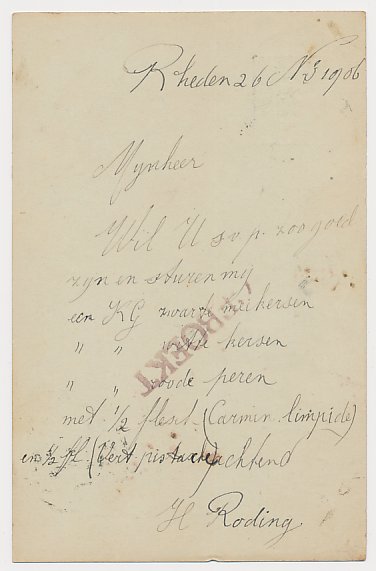 Rheden 26 Nr 1906
Mynheer
Wil U s.v.p. zoo goed
zyn en sturen my
een KG zwarte meikersen
" " witte kersen
" " roode peren
met 1/2 flesch (Carmin limpide)
en 1/2 fl. (Vert pistache) achtend
H Roding
GEBOEKT